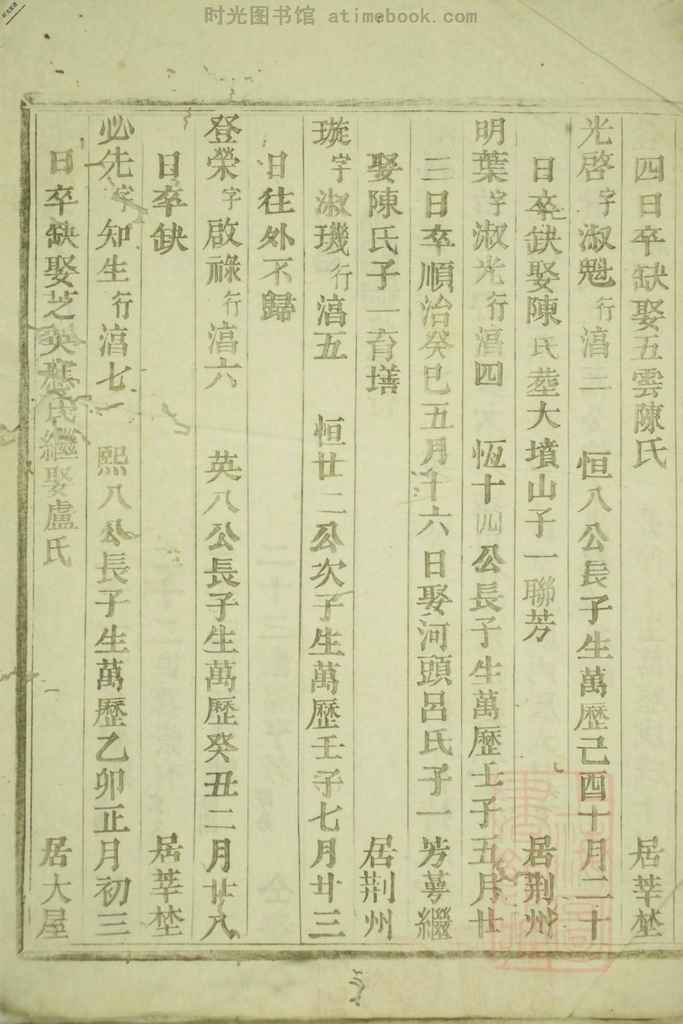 时光图书馆 atimebook.com
四日卒缺娶五雲陳氏 居莘塍
光啓字淑魁行滈三 恒八公長子生萬歷己酉十月二十
日卒缺娶陳氏塟大墳山子一聯芳 居荆州
明葉字淑光行滈四 恆十四公長子生萬歷壬子五月廿
三日卒順治癸巳五月十六日娶河頭呂氏子一芳蕚繼
娶陳氏子一育墡 居荆州
璇字淑璣行滈五 恒廿二公次子生萬歷壬子七月廿三
日往外不歸
登榮字啟祿行滈六 英八公長子生萬歷癸丑二月廿八
日卒缺 居莘塍
必先字知生行滈七 熙八公長子生萬歷乙卯正月初三
日卒缺娶芝英應氏繼娶盧氏 居大屋